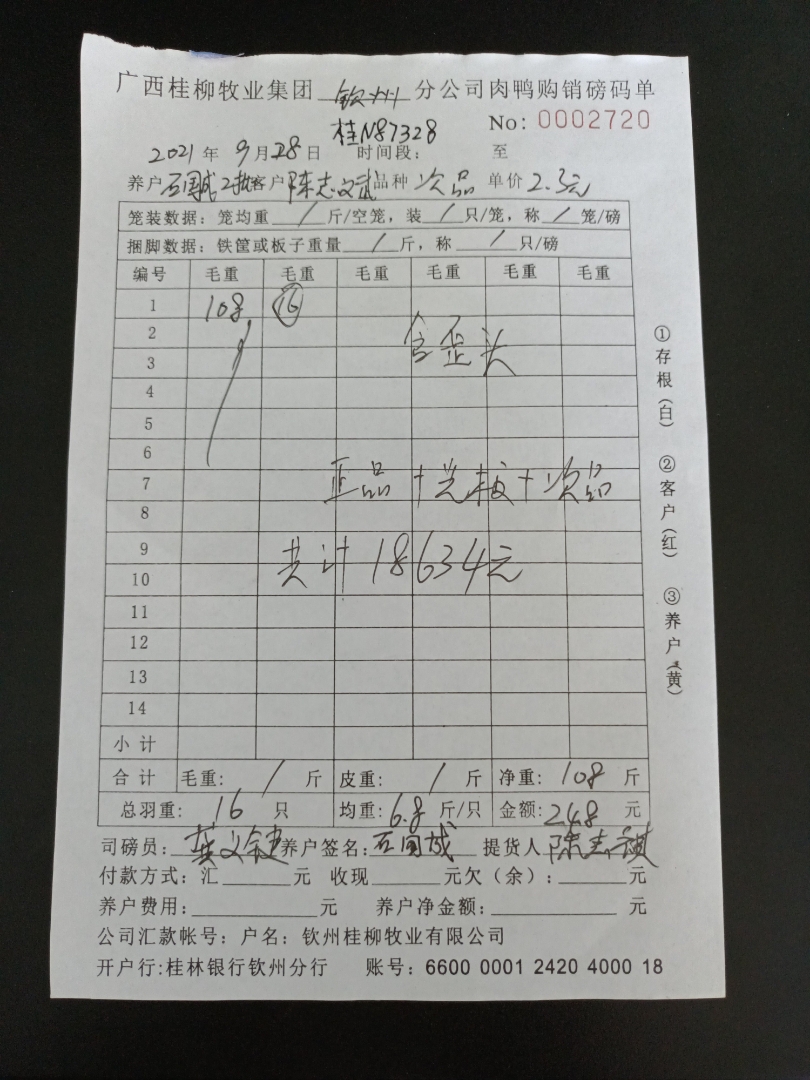 广西桂柳牧业集团 钦州 分公司肉鸭购销磅码单
桂N87328 No: 0002720
2021 年 9 月 28 日 时间段: 至
养户 石国成 2批 客户 陈志斌 品种 次品 单价 2.3元
笼装数据: 笼均重 / 斤/空笼, 装 / 只/笼, 称 / 笼/磅
捆脚数据: 铁筐或板子重量 / 斤, 称 / 只/磅
编号 毛重 毛重 毛重 毛重 毛重 毛重
1 108 16
2
3 含歪头
4
5
6
7 正品+光板+次品
8
9
10 共计18634元
11
12
13
14
小计
合计 毛重: / 斤 皮重: / 斤 净重: 108 斤
总羽重: 16 只 均重: 6.8 斤/只 金额: 248 元
司磅员: 养户签名: 石国成 提货人
付款方式: 汇 元 收现 元欠(余): 元
养户费用: 元 养户净金额: 元
公司汇款帐号: 户名: 钦州桂柳牧业有限公司
开户行:桂林银行钦州分行 账号: 6600 0001 2420 4000 18
①存根(白) ②客户(红) ③养户(黄)